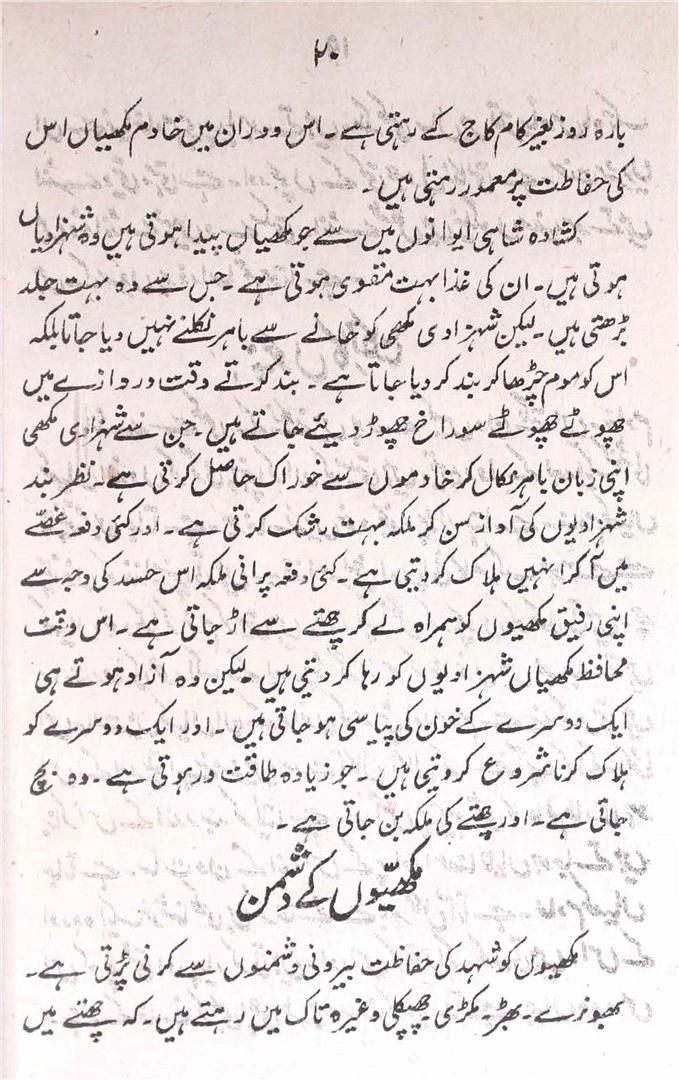 ۲۰
بارہ روز بغیر کام کاج کے رہتی ہے۔ اس دوران میں خادم مکھیاں اس
کی حفاظت پر معمور رہتی ہیں۔
کشادہ شاہی ایوانوں میں سے جو مکھیاں پیدا ہوتی ہیں وہ شہزادیاں
ہوتی ہیں۔ ان کی غذا بہت مقوی ہوتی ہے۔ جس سے وہ بہت جلد
بڑھتی ہیں۔ لیکن شہزادی مکھی کو خانے سے باہر نکلنے نہیں دیا جاتا بلکہ
اس کو موم چڑھا کر بند کر دیا جاتا ہے۔ بند کرتے وقت دروازے میں
چھوٹے چھوٹے سوراخ چھوڑ دیئے جاتے ہیں۔ جن سے شہزادی مکھی
اپنی زبان باہر نکال کر خادموں سے خوراک حاصل کرتی ہے۔ نظر بند
شہزادیوں کی آواز سن کر ملکہ بہت رشک کرتی ہے۔ اور کئی دفعہ غصے
میں آ کر انہیں ہلاک کر دیتی ہے۔ کئی دفعہ پرانی ملکہ اس حسد کی وجہ سے
اپنی رفیق مکھیوں کو ہمراہ لے کر چھتے سے اڑ جاتی ہے۔ اس وقت
محافظ مکھیاں شہزادیوں کو رہا کر دیتی ہیں۔ لیکن وہ آزاد ہوتے ہی
ایک دوسرے کے خون کی پیاسی ہو جاتی ہیں۔ اور ایک دوسرے کو
ہلاک کرنا شروع کر دیتی ہیں۔ جو زیادہ طاقت ور ہوتی ہے۔ وہ بچ
جاتی ہے۔ اور چھتے کی ملکہ بن جاتی ہے۔
مکھیّوں کے دشمن
مکھیوں کو شہد کی حفاظت بیرونی دشمنوں سے کرنی پڑتی ہے۔
بھونرے۔ بھڑ۔ مکڑی چھپکلی وغیرہ تاک میں رہتے ہیں۔ کہ چھتے میں